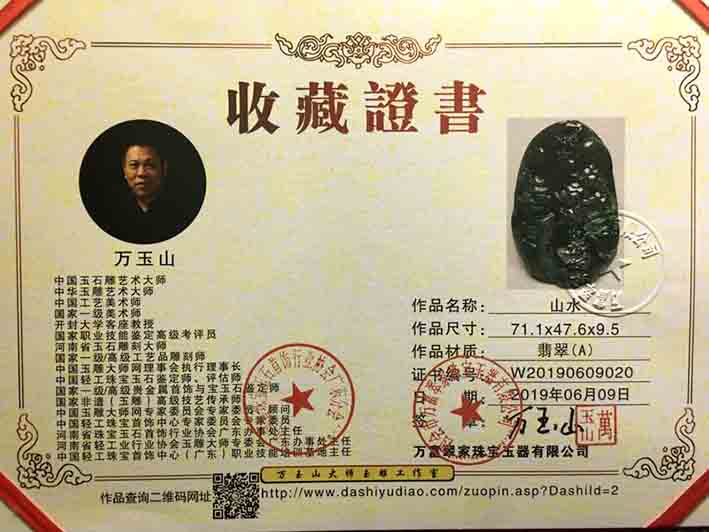 收藏證書
万玉山
中国玉石雕艺术大师
中华玉雕艺术大师
中国工艺美术师
国家一级美术师
开封大学客座教授
国家职业技能鉴定高级考评员
河南省玉石雕刻大师
国家一级/高级工艺品雕刻师
中国玉雕大师网理事会执行理事长
中国轻工珠宝玉石鉴定师、评估师
国家一级/高级贵金属首饰与宝玉石鉴定师
国家非遗（玉雕）高级技艺传承师
中国玉雕大师网专家委员会专家委员、顾问
中国轻工珠宝首饰中心专家委员会专家委员
河南省珠宝玉石首饰行业协会广东办事处主任
河南省轻工业行业协会玉雕大师专委会广东办事处主任
中国轻工珠宝首饰中心（广东）职业技能培训基地主任
作品名称: 山水
作品尺寸: 71.1x47.6x9.5
作品材质: 翡翠(A)
证书编号: W20190609020
日 期: 2019年06月09日
万玉山
萬玉山
万富翠家珠宝玉器有限公司
万玉山大师玉雕工作室
作品查询二维码网址
http://www.dashiyudiao.com/zuopin.asp?DashiId=2